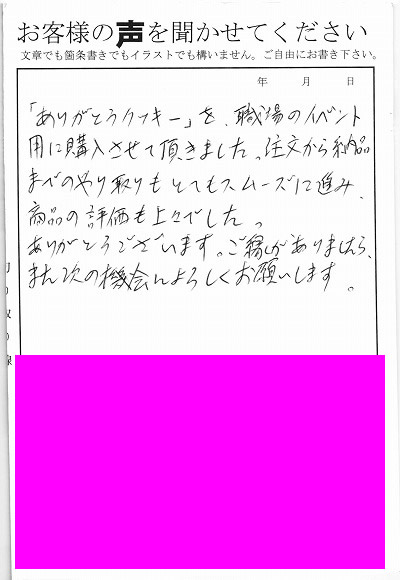 お客様の声を聞かせてください
文章でも箇条書きでもイラストでも構いません。ご自由にお書き下さい。
年 月 日
「ありがとうクッキー」を、職場のイベント
用に購入させて頂きました。注文から納品
までのやり取りもとてもスムーズに進み、
商品の評価も上々でした。
ありがとうございます。ご縁がありましたら、
また次の機会によろしくお願いします。